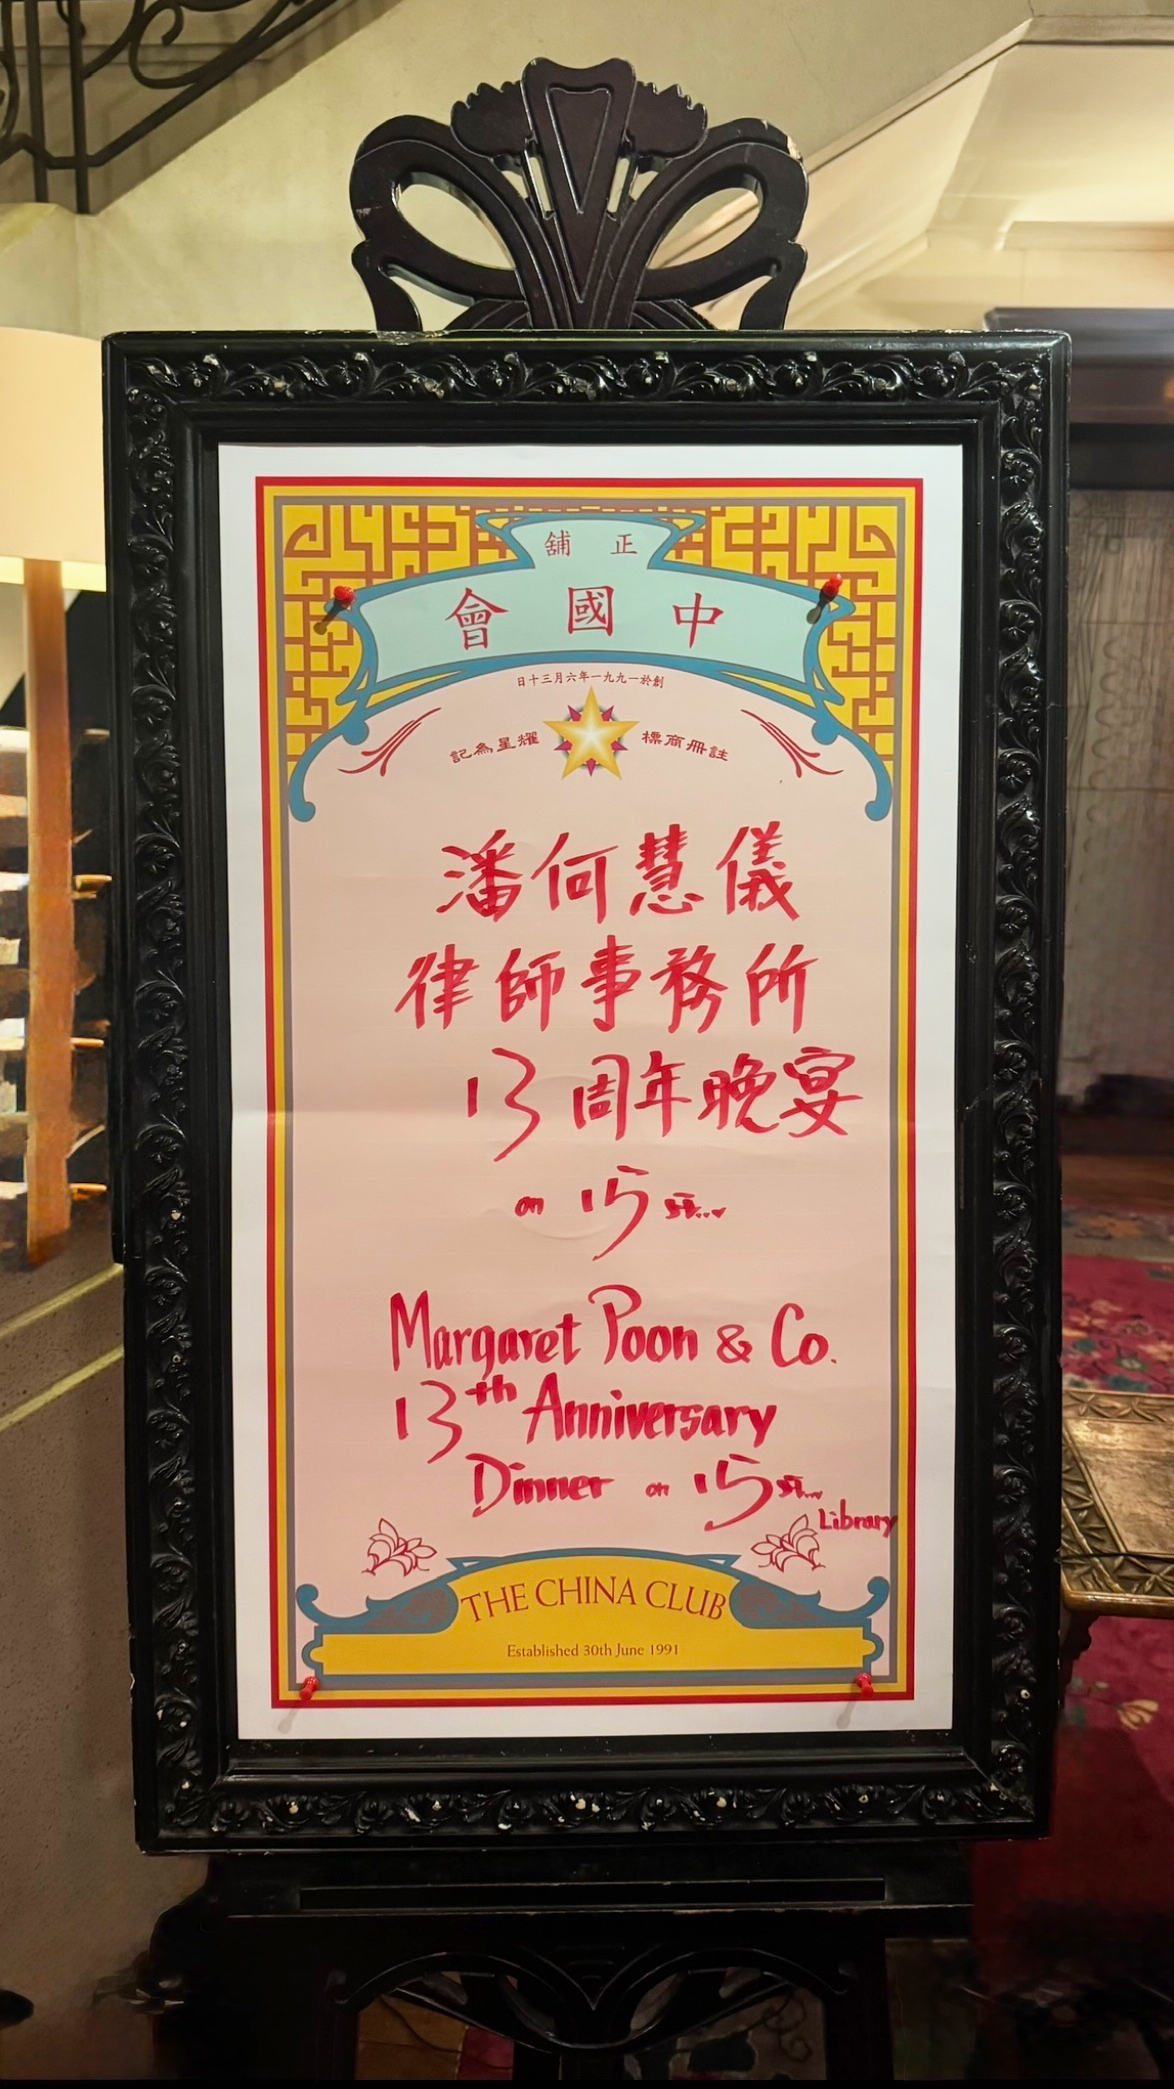 正舖
中國會
創於一九九一年六月三十日
註冊商標 耀星為記
潘何慧儀
律師事務所
13周年晚宴
on 15
Margaret Poon & Co.
13th Anniversary
Dinner on 15
Library
THE CHINA CLUB
Established 30th June 1991